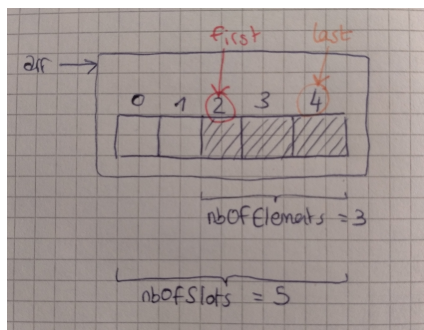 first last
arr
0 1 2 3 4
nbOfElements = 3
nbOfSlots = 5